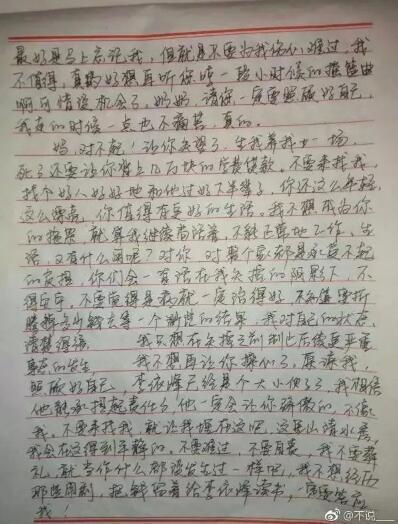 最好是马上忘记我,但就是不要为我伤心难过,我
不值得,真的好想再听你哼一段小时候的摇篮曲
啊可惜没机会了,妈妈,请你一定要照顾好自己,
我走的时候一点也不痛苦,真的。
妈,对不起!让你失望了,生我养我一场,
死了还要让你背上几万块的学费贷款。不要来找我,
找个好人好好地和他过好下半辈子,你还这么年轻,
这么漂亮,你值得有更好的生活。我不想成为你
的拖累,就算我继续苟活着,不能正常地工作,生
活,又有什么用呢?对你,对整个家都是承担不起
的负担,你们会一直活在我的阴影下,不
得安宁,不要觉得是病就一定治得好,不知道要折
腾掉多少钱去等一个渺茫的结果,我对自己的状态
清楚得很。我只想在
事态的发生,我不想再让你操心了,原谅我,
照顾好自己,李依烽已经是个大小伙了,我相信
他能承担起责任,他一定会让你骄傲的,不像
我。不要来找我,就让我埋在这吧,这里山清水秀,
我会在这得到平静的。不要难过,不要自责,我不需要葬
礼,就当作什么都没发生过一样吧,我不想经历
那些闹剧,把钱留着给李依烽读书,一定要答应
我!
@不说__